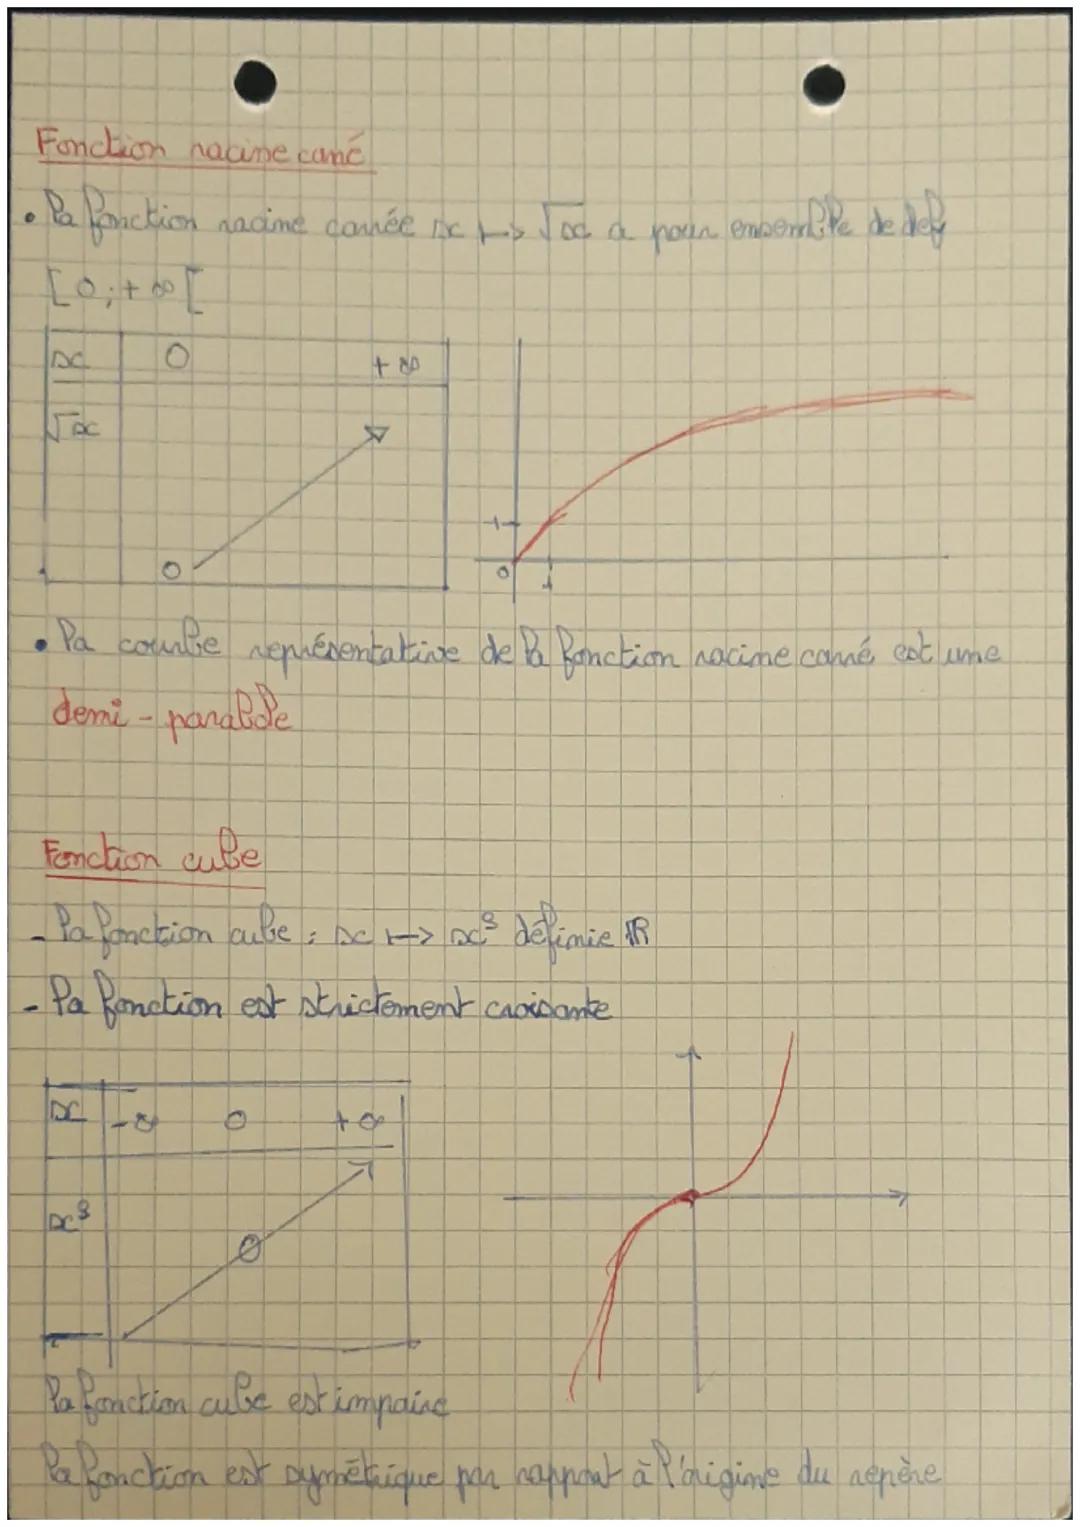 Fonction racine carré
• la fonction racine carrée x ↦ √x a pour ensemble de def
[0;+∞[
x 0 +∞
√x
0
1
0 1
• la courbe représentative de la fonction racine carré est une
demi - parabole
Fonction cube
- la fonction cube : x ↦ x³ définie ℝ
- la fonction est strictement croisante
x -∞ 0 +∞
x³ 0
la fonction cube est impaire
la fonction est symétrique par rapport à l'origine du repère